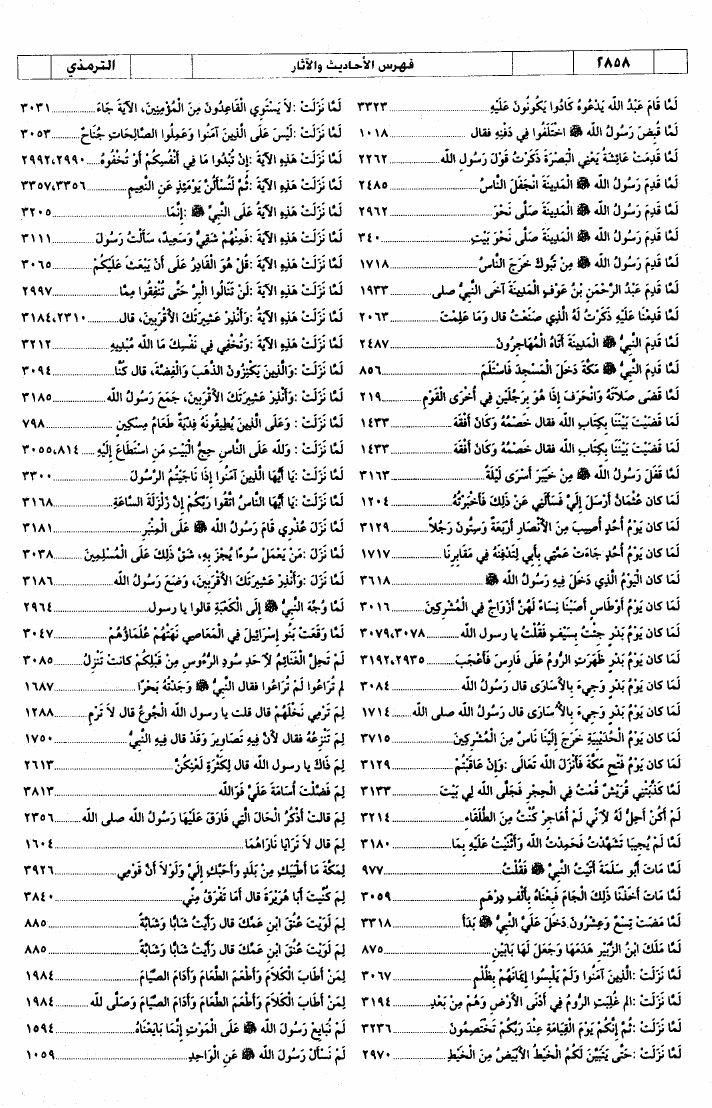 ٢٨٥٨
فهرس الأحاديث والآثار
الترمذي
لَمَّا قَامَ عَبْدُ اللَّه يَدْعُوهُ كَادُوا يَكُونُونَ عَلَيْهِ ........ ٣٣٢٣
لَمَّا قُبِضَ رَسُولُ اللَّه ﷺ اخْتَلَفُوا فِي دَفْنِهِ فقال ........ ١٠١٨
لَمَّا قَدِمَتْ عَائِشَةُ يَعْنِي الْبَصْرَةَ ذَكَرَتْ قَوْلَ رَسُولِ اللَّه ........ ٢٢٦٢
لَمَّا قَدِمَ رَسُولُ اللَّه ﷺ الْمَدِينَةَ انْجَفَلَ النَّاسُ ........ ٢٤٨٥
لَمَّا قَدِمَ رَسُولُ اللَّه ﷺ الْمَدِينَةَ صَلَّى نَحْوَ ........ ٢٩٦٢
لَمَّا قَدِمَ رَسُولُ اللَّه ﷺ الْمَدِينَةَ صَلَّى نَحْوَ بَيْتِ ........ ٣٤٠
لَمَّا قَدِمَ رَسُولُ اللَّه ﷺ مِنْ تَبُوكَ خَرَجَ النَّاسُ ........ ١٧١٨
لَمَّا قَدِمَ عَبْدُ الرَّحْمَنِ بْنُ عَوْفٍ الْمَدِينَةَ آخَى النَّبِيُّ صلى ........ ١٩٣٣
لَمَّا قَدِمْنَا عَلَيْهِ ذَكَرْتُ لَهُ الَّذِي صَنَعْتُ قال وَمَا عَلِمْتَ ........ ٢٠٦٣
لَمَّا قَدِمَ النَّبِيُّ ﷺ الْمَدِينَةَ أَتَاهُ الْمُهَاجِرُونَ ........ ٢٤٨٧
لَمَّا قَدِمَ النَّبِيُّ ﷺ مَكَّةَ دَخَلَ الْمَسْجِدَ فَاسْتَلَمَ ........ ٨٥٦
لَمَّا قَضَى صَلَاتَهُ وَانْحَرَفَ إِذَا هُوَ بِرَجُلَيْنِ فِي أُخْرَى الْقَوْمِ ........ ٢١٩
لَمَّا قَضَيْتَ بَيْنَنَا بِكِتَابِ اللَّه فقال خَصْمُهُ وَكَانَ أَفْقَهَ ........ ١٤٣٣
لَمَّا قَضَيْتَ بَيْنَنَا بِكِتَابِ اللَّه فقال خَصْمُهُ وَكَانَ أَفْقَهَ ........ ١٤٣٣
لَمَّا قَفَلَ رَسُولُ اللَّه ﷺ مِنْ خَيْبَرَ أَسْرَى لَيْلَةً ........ ٣١٦٣
لَمَّا كان عُثْمَانُ أَرْسَلَ إِلَيَّ فَسَأَلَنِي عَنْ ذَلِكَ فَأَخْبَرْتُهُ ........ ١٢٠٤
لَمَّا كان يَوْمُ أُحُدٍ أُصِيبَ مِنَ الْأَنْصَارِ أَرْبَعَةٌ وَسِتُّونَ رَجُلًا ........ ٣١٢٩
لَمَّا كان يَوْمُ أُحُدٍ جَاءَتْ عَمَّتِي بِأَبِي لِتَدْفِنَهُ فِي مَقَابِرِنَا ........ ١٧١٧
لَمَّا كان الْيَوْمُ الَّذِي دَخَلَ فِيهِ رَسُولُ اللَّه ﷺ ........ ٣٦١٨
لَمَّا كان يَوْمُ أَوْطَاسٍ أَصَبْنَا نِسَاءً لَهُنَّ أَزْوَاجٌ فِي الْمُشْرِكِينَ ........ ٣٠١٦
لَمَّا كان يَوْمُ بَدْرٍ جِئْتُ بِسَيْفٍ فَقُلْتُ يا رسول اللَّه ........ ٣٠٧٩،٣٠٧٨
لَمَّا كان يَوْمُ بَدْرٍ ظَهَرَتِ الرُّومُ عَلَى فَارِسَ فَأَعْجَبَ ........ ٣١٩٢،٢٩٣٥
لَمَّا كان يَوْمُ بَدْرٍ وَجِيءَ بِالْأَسَارَى قال رَسُولُ اللَّه ........ ٣٠٨٤
لَمَّا كان يَوْمُ بَدْرٍ وَجِيءَ بِالْأُسَارَى قال رَسُولُ اللَّه صلى اللَّه ........ ١٧١٤
لَمَّا كان يَوْمُ الْحُدَيْبِيَةِ خَرَجَ إِلَيْنَا نَاسٌ مِنَ الْمُشْرِكِينَ ........ ٣٧١٥
لَمَّا كان يَوْمُ فَتْحِ مَكَّةَ فَأَنْزَلَ اللَّه تَعَالَى :وَإِنْ عَاقَبْتُمْ ........ ٣١٢٩
لَمَّا كَذَّبَتْنِي قُرَيْشٌ قُمْتُ فِي الْحِجْرِ فَجَلَّى اللَّه لِي بَيْتَ ........ ٣١٣٣
لَمْ أَكُنْ أَحِلُّ لَهُ لِأَنِّي لَمْ أُهَاجِرْ كُنْتُ مِنَ الطُّلَقَاءِ ........ ٣٢١٤
لَمَّا لَمْ يُجِيبَا تَشَهَّدْتُ فَحَمِدْتُ اللَّه وَأَثْنَيْتُ عَلَيْهِ بِمَا ........ ٣١٨٠
لَمَّا مَاتَ أَبُو سَلَمَةَ أَتَيْتُ النَّبِيَّ ﷺ فَقُلْتُ ........ ٩٧٧
لَمَّا مَاتَ أَخَذْنَا ذَلِكَ الْجَامَ فَبِعْنَاهُ بِأَلْفِ دِرْهَمٍ ........ ٣٠٥٩
لَمَّا مَضَتْ تِسْعٌ وَعِشْرُونَ دَخَلَ عَلَيَّ النَّبِيُّ ﷺ بَدَأَ ........ ٣٣١٨
لَمَّا مَلَكَ ابْنُ الزُّبَيْرِ هَدَمَهَا وَجَعَلَ لَهَا بَابَيْنِ ........ ٨٧٥
لَمَّا نَزَلَتْ :الَّذِينَ آمَنُوا وَلَمْ يَلْبِسُوا إِيمَانَهُمْ بِظُلْمٍ ........ ٣٠٦٧
لَمَّا نَزَلَتْ :الم غُلِبَتِ الرُّومُ فِي أَدْنَى الْأَرْضِ وَهُمْ مِنْ بَعْدِ ........ ٣١٩٤
لَمَّا نَزَلَتْ :ثُمَّ إِنَّكُمْ يَوْمَ الْقِيَامَةِ عِنْدَ رَبِّكُمْ تَخْتَصِمُونَ ........ ٣٢٣٦
لَمَّا نَزَلَتْ :حَتَّى يَتَبَيَّنَ لَكُمُ الْخَيْطُ الْأَبْيَضُ مِنَ الْخَيْطِ ........ ٢٩٧٠
لَمَّا نَزَلَتْ :لاَ يَسْتَوِي الْقَاعِدُونَ مِنَ الْمُؤْمِنِينَ، الْآيَةَ جَاءَ ........ ٣٠٣١
لَمَّا نَزَلَتْ :لَيْسَ عَلَى الَّذِينَ آمَنُوا وَعَمِلُوا الصَّالِحَاتِ جُنَاحٌ ........ ٣٠٥٣
لَمَّا نَزَلَتْ هَذِهِ الْآيَةُ :إِنْ تُبْدُوا مَا فِي أَنْفُسِكُمْ أَوْ تُخْفُوهُ ........ ٢٩٩٢،٢٩٩٠
لَمَّا نَزَلَتْ هَذِهِ الْآيَةُ :ثُمَّ لَتُسْأَلُنَّ يَوْمَئِذٍ عَنِ النَّعِيمِ ........ ٣٣٥٧،٣٣٥٦
لَمَّا نَزَلَتْ هَذِهِ الْآيَةُ عَلَى النَّبِيِّ ﷺ :إِنَّمَا ........ ٣٢٠٥
لَمَّا نَزَلَتْ هَذِهِ الْآيَةُ :فَمِنْهُمْ شَقِيٌّ وَسَعِيدٌ، سَأَلْتُ رَسُولَ ........ ٣١١١
لَمَّا نَزَلَتْ هَذِهِ الْآيَةُ :قُلْ هُوَ الْقَادِرُ عَلَى أَنْ يَبْعَثَ عَلَيْكُمْ ........ ٣٠٦٥
لَمَّا نَزَلَتْ هَذِهِ الْآيَةُ :لَنْ تَنَالُوا الْبِرَّ حَتَّى تُنْفِقُوا مِمَّا ........ ٢٩٩٧
لَمَّا نَزَلَتْ هَذِهِ الْآيَةُ :وَأَنْذِرْ عَشِيرَتَكَ الْأَقْرَبِينَ، قال ........ ٣١٨٤،٢٣١٠
لَمَّا نَزَلَتْ هَذِهِ الْآيَةُ :وَتُخْفِي فِي نَفْسِكَ مَا اللَّه مُبْدِيهِ ........ ٣٢١٢
لَمَّا نَزَلَتْ :وَالَّذِينَ يَكْنِزُونَ الذَّهَبَ وَالْفِضَّةَ، قال كُنَّا ........ ٣٠٩٤
لَمَّا نَزَلَتْ :وَأَنْذِرْ عَشِيرَتَكَ الْأَقْرَبِينَ، جَمَعَ رَسُولُ اللَّه ........ ٣١٨٥
لَمَّا نَزَلَتْ : وَعَلَى الَّذِينَ يُطِيقُونَهُ فِدْيَةٌ طَعَامُ مِسْكِينٍ ........ ٧٩٨
لَمَّا نَزَلَتْ : وَللَّه عَلَى النَّاسِ حِجُّ الْبَيْتِ مَنِ اسْتَطَاعَ إِلَيْهِ ........ ٣٠٥٥،٨١٤
لَمَّا نَزَلَتْ :يَا أَيُّهَا الَّذِينَ آمَنُوا إِذَا نَاجَيْتُمُ الرَّسُولَ ........ ٣٣٠٠
لَمَّا نَزَلَتْ :يَا أَيُّهَا النَّاسُ اتَّقُوا رَبَّكُمْ إِنَّ زَلْزَلَةَ السَّاعَةِ ........ ٣١٦٨
لَمَّا نَزَلَ عُذْرِي قَامَ رَسُولُ اللَّه ﷺ عَلَى الْمِنْبَرِ ........ ٣١٨١
لَمَّا نَزَلَ :مَنْ يَعْمَلْ سُوءًا يُجْزَ بِهِ، شَقَّ ذَلِكَ عَلَى الْمُسْلِمِينَ ........ ٣٠٣٨
لَمَّا نَزَلَ :وَأَنْذِرْ عَشِيرَتَكَ الْأَقْرَبِينَ، وَضَعَ رَسُولُ اللَّه ........ ٣١٨٦
لَمَّا وُجِّهَ النَّبِيُّ ﷺ إِلَى الْكَعْبَةِ قالوا يا رسول ........ ٢٩٦٤
لَمَّا وَقَعَتْ بَنُو إِسْرَائِيلَ فِي الْمَعَاصِي نَهَتْهُمْ عُلَمَاؤُهُمْ ........ ٣٠٤٧
لَمْ تَحِلَّ الْغَنَائِمُ لِأَحَدٍ سُودِ الرُّءُوسِ مِنْ قَبْلِكُمْ كانت تَنْزِلُ ........ ٣٠٨٥
لم تُرَاعُوا لَمْ تُرَاعُوا فقال النَّبِيُّ ﷺ وَجَدْتُهُ بَحْرًا ........ ١٦٨٧
لِمَ تَرْمِي نَخْلَهُمْ قال قلت يا رسول اللَّه الْجُوعُ قال لاَ تَرْمِ ........ ١٢٨٨
لِمَ تَنْزِعُهُ فقال لِأَنَّ فِيهِ تَصَاوِيرَ وَقَدْ قال فِيهِ النَّبِيُّ ........ ١٧٥٠
لِمَ ذَاكَ يا رسول اللَّه قال لِكَثْرَةِ لَعْنِكُنَّ ........ ٢٦١٣
لِمَ فَضَّلْتَ أُسَامَةَ عَلَيَّ فَوَاللَّه ........ ٣٨١٣
لِمَ قالت أَذْكُرُ الْحَالَ الَّتِي فَارَقَ عَلَيْهَا رَسُولُ اللَّه صلى اللَّه ........ ٢٣٥٦
لِمَ قال لاَ تَرَايَا نَارَاهُمَا ........ ١٦٠٤
لِمَكَّةَ مَا أَطْيَبَكِ مِنْ بَلَدٍ وَأَحَبَّكِ إِلَيَّ وَلَوْلاَ أَنَّ قَوْمِي ........ ٣٩٢٦
لِمَ كُنِّيتَ أَبَا هُرَيْرَةَ قال أَمَا تَفْرَقُ مِنِّي ........ ٣٨٤٠
لِمَ لَوَيْتَ عُنُقَ ابْنِ عَمِّكَ قال رَأَيْتُ شَابًّا وَشَابَّةً ........ ٨٨٥
لِمَ لَوَيْتَ عُنُقَ ابْنِ عَمِّكَ قال رَأَيْتُ شَابًّا وَشَابَّةً ........ ٨٨٥
لِمَنْ أَطَابَ الْكَلَامَ وَأَطْعَمَ الطَّعَامَ وَأَدَامَ الصِّيَامَ ........ ١٩٨٤
لِمَنْ أَطَابَ الْكَلَامَ وَأَطْعَمَ الطَّعَامَ وَأَدَامَ الصِّيَامَ وَصَلَّى للَّه ........ ١٩٨٤
لَمْ نُبَايِعْ رَسُولَ اللَّه ﷺ عَلَى الْمَوْتِ إِنَّمَا بَايَعْنَاهُ ........ ١٥٩٤
لَمْ نَسْأَلْ رَسُولَ اللَّه ﷺ عَنِ الْوَاحِدِ ........ ١٠٥٩